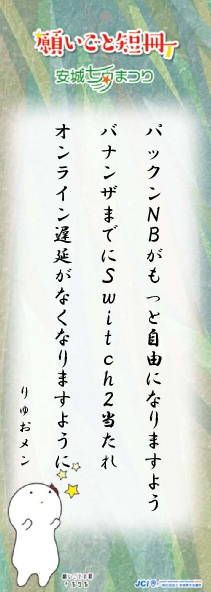 願いごと短冊
安城七夕まつり
パックンNBがもっと自由になりますよう
バナンザまでにSwitch2当たれ
オンライン遅延がなくなりますように
りゅおメン
JCI